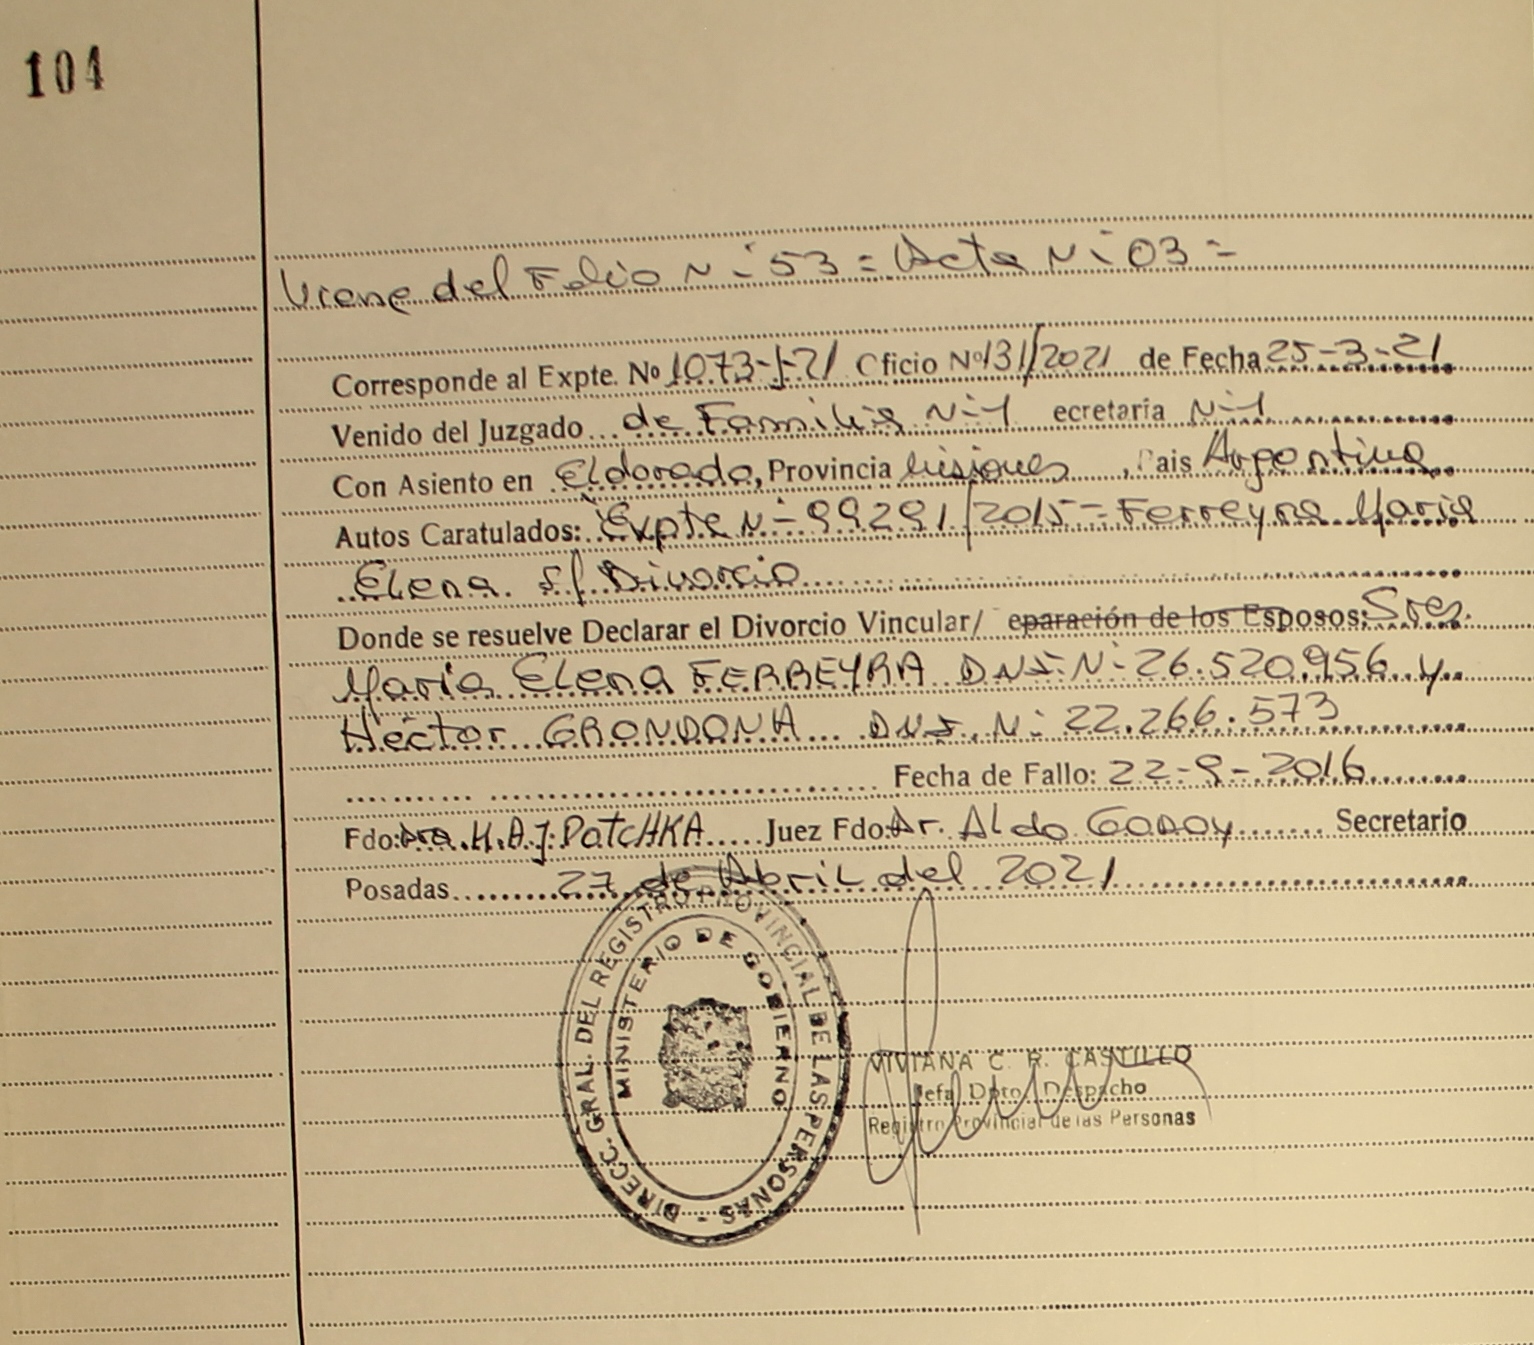 104
Viene del Folio N- 53 = Acta N- 03 =
Corresponde al Expte. Nº 1073-J-21 Oficio Nº 131/2021 de Fecha 25-3-21
Venido del Juzgado de Familia N-1 ecretaria N-1
Con Asiento en Eldorado, Provincia Misiones, Pais Argentina
Autos Caratulados: Expte N- 99291/2015 - Ferreyra Maria
Elena s/ Divorcio
Donde se resuelve Declarar el Divorcio Vincular/ eparación de los Esposos: Sres.
Maria Elena FERREYRA DNI. N- 26.520.956 y
Héctor GRONDONA DNI. N- 22.266.573
Fecha de Fallo: 22-9-2016
Fdo: Dra. M.A.J. PATCHKA Juez Fdo: Dr. Aldo GODOY Secretario
Posadas 27 de Abril del 2021
DIRECC. GRAL. DEL REGISTRO PROVINCIAL DE LAS PERSONAS -
MINISTERIO DE GOBIERNO
VIVIANA C. R. CASTILLO
Jefa Dpto. Despacho
Registro Provincial de las Personas